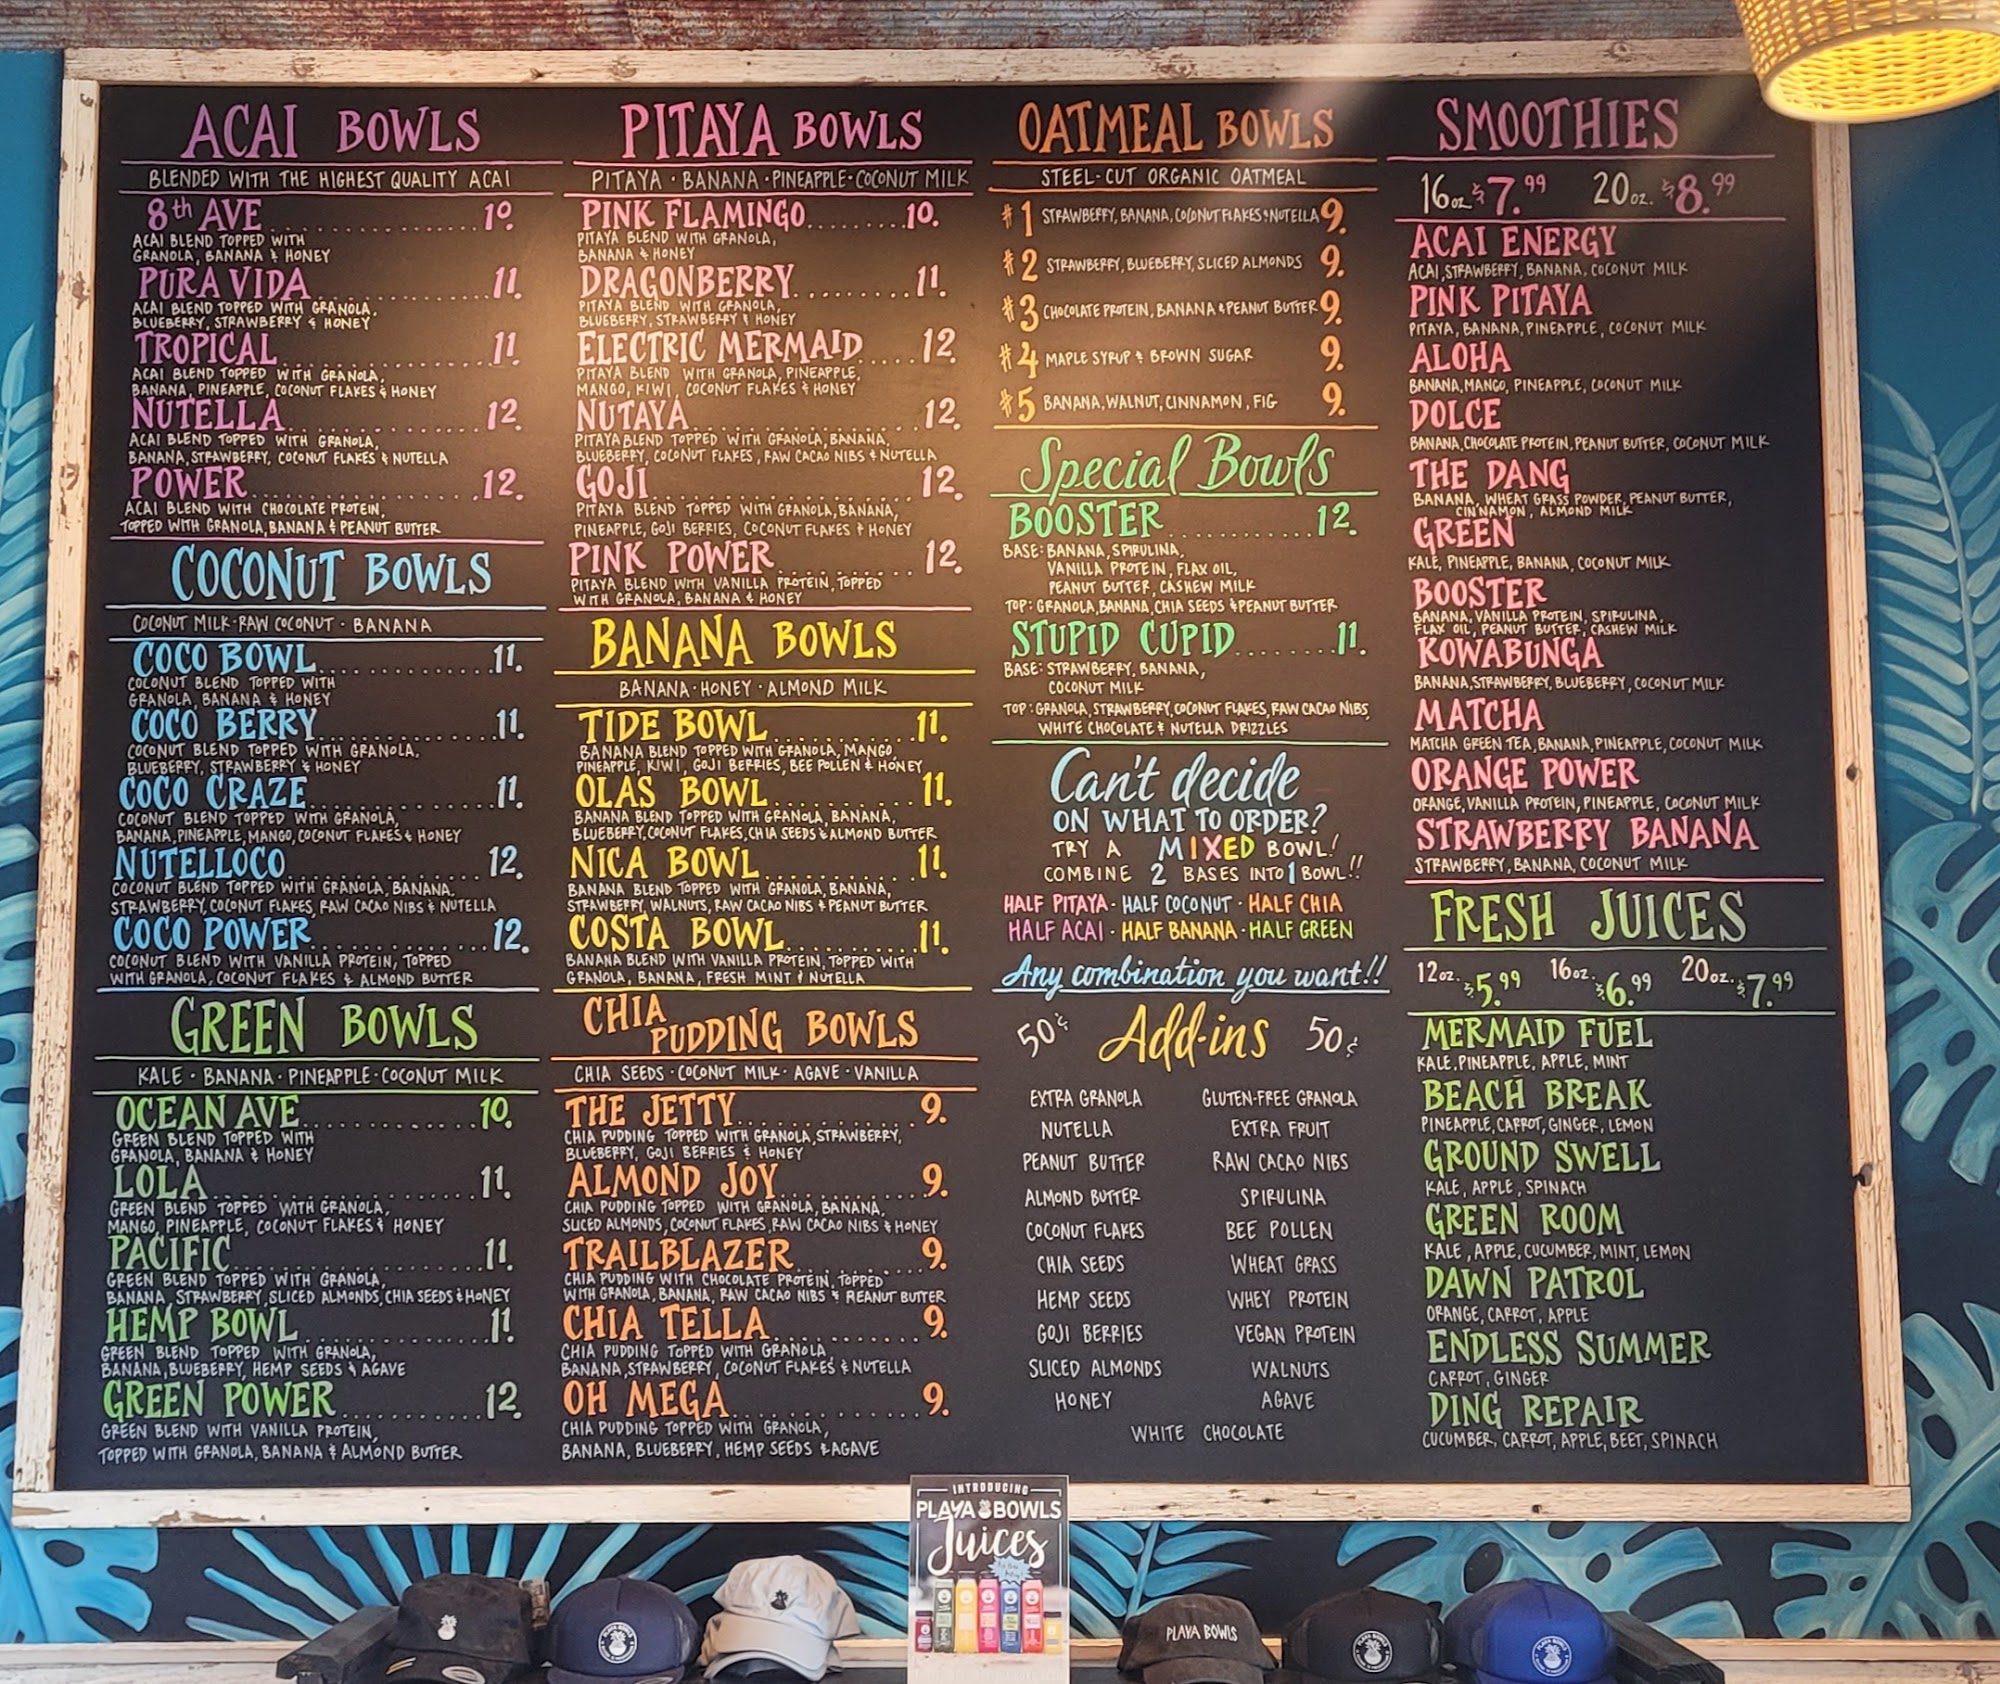 ACAI BOWLS
BLENDED WITH THE HIGHEST QUALITY ACAI
8th AVE 10.
ACAI BLEND TOPPED WITH
GRANOLA, BANANA & HONEY
PURA VIDA 11.
ACAI BLEND TOPPED WITH GRANOLA,
BLUEBERRY, STRAWBERRY & HONEY
TROPICAL 11.
ACAI BLEND TOPPED WITH GRANOLA,
BANANA, PINEAPPLE, COCONUT FLAKES & HONEY
NUTELLA 12.
ACAI BLEND TOPPED WITH GRANOLA,
BANANA, STRAWBERRY, COCONUT FLAKES & NUTELLA
POWER 12.
ACAI BLEND WITH CHOCOLATE PROTEIN,
TOPPED WITH GRANOLA, BANANA & PEANUT BUTTER
COCONUT BOWLS
COCONUT MILK · RAW COCONUT · BANANA
COCO BOWL 11.
COCONUT BLEND TOPPED WITH
GRANOLA, BANANA & HONEY
COCO BERRY 11.
COCONUT BLEND TOPPED WITH GRANOLA,
BLUEBERRY, STRAWBERRY & HONEY
COCO CRAZE 11.
COCONUT BLEND TOPPED WITH GRANOLA,
BANANA, PINEAPPLE, MANGO, COCONUT FLAKES & HONEY
NUTELLOCO 12.
COCONUT BLEND TOPPED WITH GRANOLA, BANANA,
STRAWBERRY, COCONUT FLAKES, RAW CACAO NIBS & NUTELLA
COCO POWER 12.
COCONUT BLEND WITH VANILLA PROTEIN, TOPPED
WITH GRANOLA, COCONUT FLAKES & ALMOND BUTTER
GREEN BOWLS
KALE · BANANA · PINEAPPLE · COCONUT MILK
OCEAN AVE 10.
GREEN BLEND TOPPED WITH
GRANOLA, BANANA & HONEY
LOLA 11.
GREEN BLEND TOPPED WITH GRANOLA,
MANGO, PINEAPPLE, COCONUT FLAKES & HONEY
PACIFIC 11.
GREEN BLEND TOPPED WITH GRANOLA,
BANANA, STRAWBERRY, SLICED ALMONDS, CHIA SEEDS & HONEY
HEMP BOWL 11.
GREEN BLEND TOPPED WITH GRANOLA,
BANANA, BLUEBERRY, HEMP SEEDS & AGAVE
GREEN POWER 12.
GREEN BLEND WITH VANILLA PROTEIN,
TOPPED WITH GRANOLA, BANANA & ALMOND BUTTER
PITAYA BOWLS
PITAYA · BANANA · PINEAPPLE · COCONUT MILK
PINK FLAMINGO 10.
PITAYA BLEND WITH GRANOLA,
BANANA & HONEY
DRAGONBERRY 11.
PITAYA BLEND WITH GRANOLA,
BLUEBERRY, STRAWBERRY & HONEY
ELECTRIC MERMAID 12.
PITAYA BLEND WITH GRANOLA, PINEAPPLE,
MANGO, KIWI, COCONUT FLAKES & HONEY
NUTAYA 12.
PITAYA BLEND TOPPED WITH GRANOLA, BANANA,
BLUEBERRY, COCONUT FLAKES, RAW CACAO NIBS & NUTELLA
GOJI 12.
PITAYA BLEND TOPPED WITH GRANOLA, BANANA,
PINEAPPLE, GOJI BERRIES, COCONUT FLAKES & HONEY
PINK POWER 12.
PITAYA BLEND WITH VANILLA PROTEIN, TOPPED
WITH GRANOLA, BANANA & HONEY
BANANA BOWLS
BANANA · HONEY · ALMOND MILK
TIDE BOWL 11.
BANANA BLEND TOPPED WITH GRANOLA, MANGO
PINEAPPLE, KIWI, GOJI BERRIES, BEE POLLEN & HONEY
OLAS BOWL 11.
BANANA BLEND TOPPED WITH GRANOLA, BANANA,
BLUEBERRY, COCONUT FLAKES, CHIA SEEDS & ALMOND BUTTER
NICA BOWL 11.
BANANA BLEND TOPPED WITH GRANOLA, BANANA,
STRAWBERRY, WALNUTS, RAW CACAO NIBS & PEANUT BUTTER
COSTA BOWL 11.
BANANA BLEND WITH VANILLA PROTEIN, TOPPED WITH
GRANOLA, BANANA, FRESH MINT & NUTELLA
CHIA PUDDING BOWLS
CHIA SEEDS · COCONUT MILK · AGAVE · VANILLA
THE JETTY 9.
CHIA PUDDING TOPPED WITH GRANOLA, STRAWBERRY,
BLUEBERRY, GOJI BERRIES & HONEY
ALMOND JOY 9.
CHIA PUDDING TOPPED WITH GRANOLA, BANANA,
SLICED ALMONDS, COCONUT FLAKES, RAW CACAO NIBS & HONEY
TRAILBLAZER 9.
CHIA PUDDING WITH CHOCOLATE PROTEIN, TOPPED
WITH GRANOLA, BANANA, RAW CACAO NIBS & PEANUT BUTTER
CHIA TELLA 9.
CHIA PUDDING TOPPED WITH GRANOLA
BANANA, STRAWBERRY, COCONUT FLAKES & NUTELLA
OH MEGA 9.
CHIA PUDDING TOPPED WITH GRANOLA,
BANANA, BLUEBERRY, HEMP SEEDS & AGAVE
OATMEAL BOWLS
STEEL-CUT ORGANIC OATMEAL
#1 STRAWBERRY, BANANA, COCONUT FLAKES & NUTELLA 9.
#2 STRAWBERRY, BLUEBERRY, SLICED ALMONDS 9.
#3 CHOCOLATE PROTEIN, BANANA & PEANUT BUTTER 9.
#4 MAPLE SYRUP & BROWN SUGAR 9.
#5 BANANA, WALNUT, CINNAMON, FIG 9.
Special Bowls
BOOSTER 12.
BASE: BANANA, SPIRULINA,
VANILLA PROTEIN, FLAX OIL,
PEANUT BUTTER, CASHEW MILK
TOP: GRANOLA, BANANA, CHIA SEEDS & PEANUT BUTTER
STUPID CUPID 11.
BASE: STRAWBERRY, BANANA,
COCONUT MILK
TOP: GRANOLA, STRAWBERRY, COCONUT FLAKES, RAW CACAO NIBS,
WHITE CHOCOLATE & NUTELLA DRIZZLES
Can't decide
ON WHAT TO ORDER?
TRY A MIXED BOWL!
COMBINE 2 BASES INTO 1 BOWL!!
HALF PITAYA · HALF COCONUT · HALF CHIA
HALF ACAI · HALF BANANA · HALF GREEN
Any combination you want!!
50¢ Add-ins 50¢
EXTRA GRANOLA GLUTEN-FREE GRANOLA
NUTELLA EXTRA FRUIT
PEANUT BUTTER RAW CACAO NIBS
ALMOND BUTTER SPIRULINA
COCONUT FLAKES BEE POLLEN
CHIA SEEDS WHEAT GRASS
HEMP SEEDS WHEY PROTEIN
GOJI BERRIES VEGAN PROTEIN
SLICED ALMONDS WALNUTS
HONEY AGAVE
WHITE CHOCOLATE
SMOOTHIES
16oz $7.99 20oz. $8.99
ACAI ENERGY
ACAI, STRAWBERRY, BANANA, COCONUT MILK
PINK PITAYA
PITAYA, BANANA, PINEAPPLE, COCONUT MILK
ALOHA
BANANA, MANGO, PINEAPPLE, COCONUT MILK
DOLCE
BANANA, CHOCOLATE PROTEIN, PEANUT BUTTER, COCONUT MILK
THE DANG
BANANA, WHEAT GRASS POWDER, PEANUT BUTTER,
CINNAMON, ALMOND MILK
GREEN
KALE, PINEAPPLE, BANANA, COCONUT MILK
BOOSTER
BANANA, VANILLA PROTEIN, SPIRULINA,
FLAX OIL, PEANUT BUTTER, CASHEW MILK
KOWABUNGA
BANANA, STRAWBERRY, BLUEBERRY, COCONUT MILK
MATCHA
MATCHA GREEN TEA, BANANA, PINEAPPLE, COCONUT MILK
ORANGE POWER
ORANGE, VANILLA PROTEIN, PINEAPPLE, COCONUT MILK
STRAWBERRY BANANA
STRAWBERRY, BANANA, COCONUT MILK
FRESH JUICES
12oz. $5.99 16oz. $6.99 20oz. $7.99
MERMAID FUEL
KALE, PINEAPPLE, APPLE, MINT
BEACH BREAK
PINEAPPLE, CARROT, GINGER, LEMON
GROUND SWELL
KALE, APPLE, SPINACH
GREEN ROOM
KALE, APPLE, CUCUMBER, MINT, LEMON
DAWN PATROL
ORANGE, CARROT, APPLE
ENDLESS SUMMER
CARROT, GINGER
DING REPAIR
CUCUMBER, CARROT, APPLE, BEET, SPINACH
INTRODUCING
PLAYA BOWLS
Juices
PLAYA BOWLS
PLAYA BOWLS
PLAYA BOWLS
PLAYA BOWLS